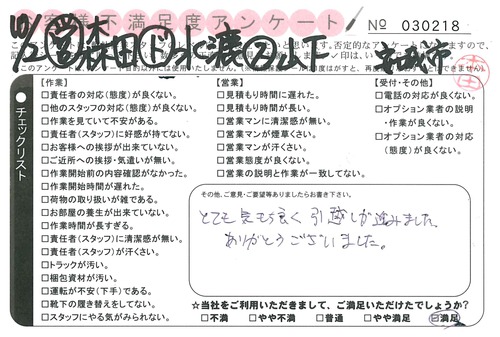 お客様不満足度アンケート
No 030218
10/2 営 森田 水渡 山下
チェックリスト
【作業】
□責任者の対応(態度)が良くない。
□他のスタッフの対応(態度)が良くない。
□作業を見ていて不安がある。
□責任者(スタッフ)に好感が持てない。
□お客様への挨拶が出来ていない。
□ご近所への挨拶・気遣いが無い。
□作業開始前の内容確認がなかった。
□作業開始時間が遅れた。
□荷物の取り扱いが雑である。
□お部屋の養生が出来ていない。
□作業時間が長すぎる。
□責任者(スタッフ)に清潔感が無い。
□責任者(スタッフ)が汗くさい。
□トラックが汚い。
□梱包資材が汚い。
□運転が不安(下手)である。
□靴下の履き替えをしてない。
□スタッフにやる気がみられない。
【営業】
□見積もり時間に遅れた。
□見積もり時間が長い。
□営業マンに清潔感が無い。
□営業マンが煙草くさい。
□営業マンが汗くさい。
□営業態度が良くない。
□営業の説明と作業が一致してない。
【受付・その他】
□電話の対応が良くない。
□オプション業者の説明
・作業が良くない。
□オプション業者の対応
(態度)が良くない。
その他、ご意見・ご要望等ありましたらお書き下さい。
とても気もち良く引越しが進みました。
ありがとうございました。
☆当社をご利用いただきまして、ご満足いただけたでしょうか?
□不満 □やや不満 □普通 □やや満足 □満足